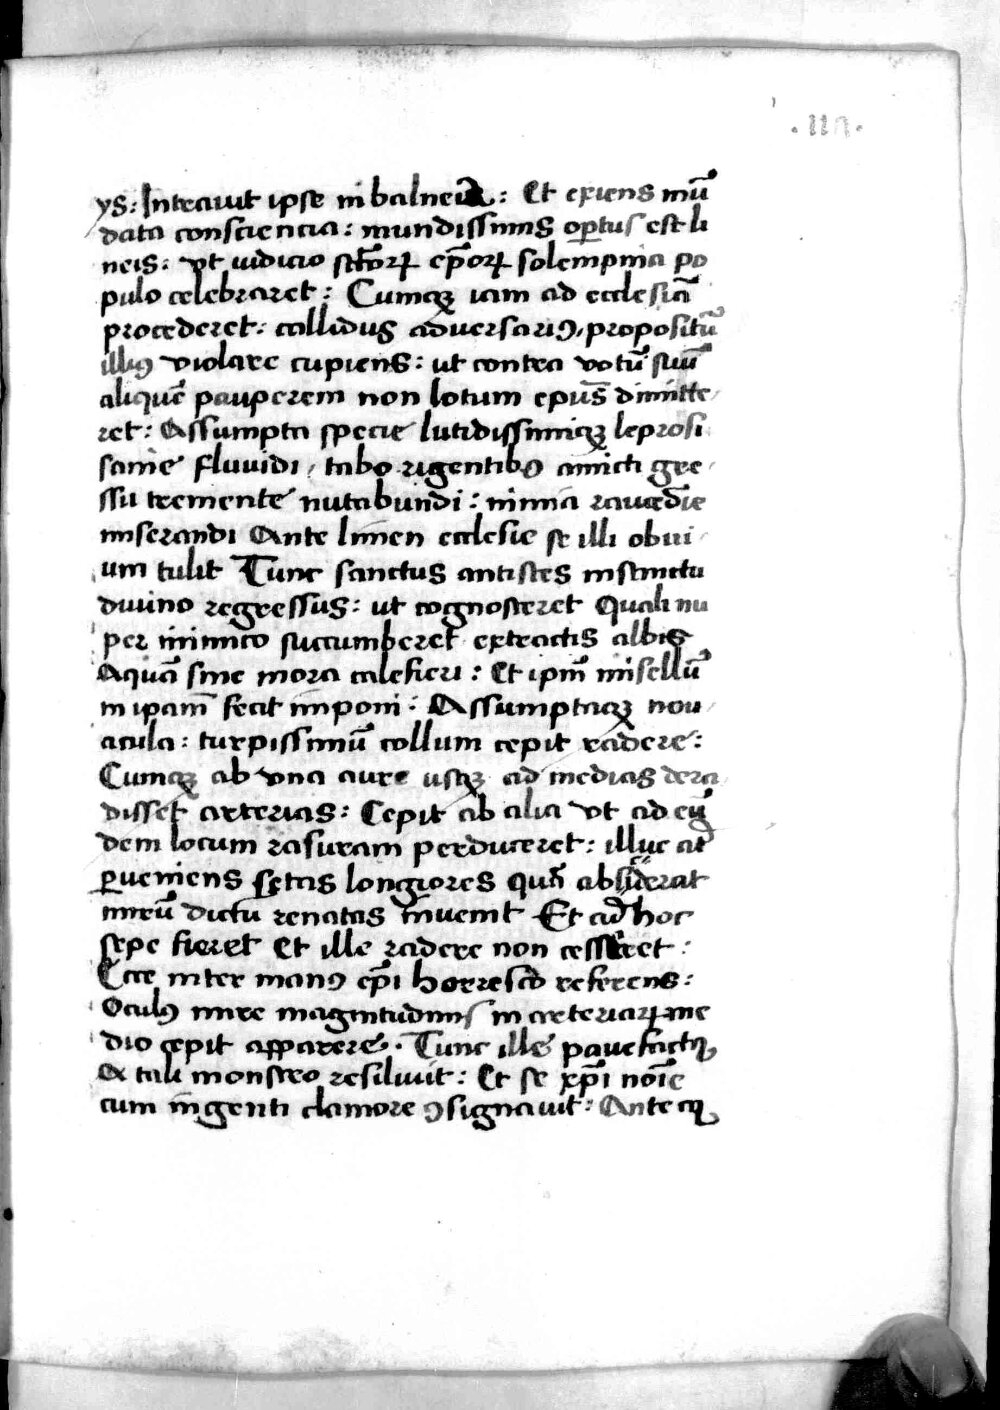 .117.
ys: Intrauit ipse in balneũ: Et exiens mũ
data consciencia: mundissimis opertus est li
neis: vt iudicio sctõrꝝ ep̃orꝝ solempnia po
pulo celebraret: Cumqꝫ iam ad ecclesiã
procederet: callidus aduersariꝰ, propositũ
illiꝰ violare cupiens: ut contra votũ suũ
aliquẽ pauperem non lotum epus̃ dimitte
ret: Assumpta specie lutidissimiqꝫ leprosi
sanie fluuidi, tabo rigentibꝰ amicti gre
ssu tremente nutabundi: nimia raucedĩe
miserandi Ante limen ecclesie se illi obui
um tulit Tunc sanctus antistes instinctu
diuino regressus: ut cognosceret Quali nu
per inimico succumberet extractis albis
Aquã sine mora calefieri: Et ipm̃ misellũ
in ipam̃ fecit imponi: Assumptaqꝫ nou
acula: turpissimũ collum cepit radere:
Cumqꝫ ab vna aure usqꝫ ad medias dera
disset arterias: Cepit ab alia vt ad eũ
dem locum rasuram perduceret: illuc at
ꝑueniens setas longiores quã absciderat
mirũ dictu renatas inuenit Et cũ hoc
sepe fieret Et ille radere non cessaret:
Ecce inter manꝰ ep̃i horresco referens:
Oculꝰ mire magnitudinis in arteriarꝝ me
dio cepit apparere. Tunc ille pauefactꝰ
A tali monstro resiliuit: Et se xp̃i noĩe
cum ingenti clamore ꝯsignauit: Ante cꝰ